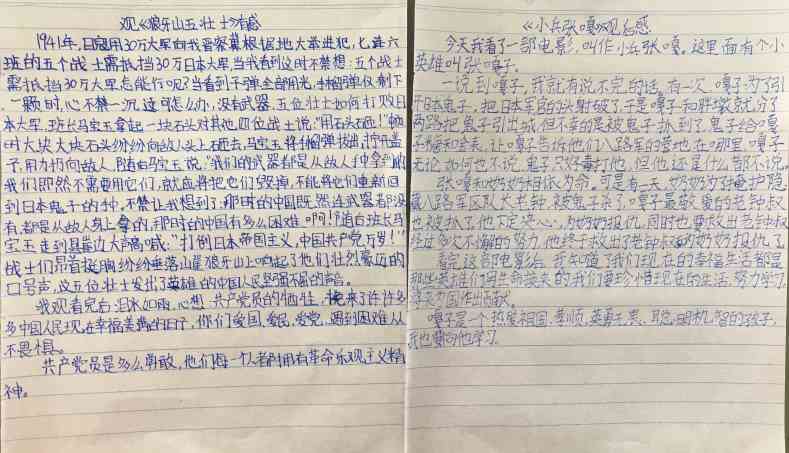 观《狼牙山五壮士》有感
1941年,日寇用30万大军向我晋察冀根据地大举进犯,七连六
班的五个战士需抵挡30万日本大军当我看到这时不禁想:五个战士
需抵挡30万大军怎能行呢?当看到子弹全部用光,手榴弹仅剩下
一颗时,心不禁一沉,这可怎么办,没有武器,五位壮士如何打败日
本大军,班长马宝玉拿起一块石头对其他四位战士说:"用石头砸!"顿
时大块大块石头纷纷向敌人头上砸去,马宝玉将手榴弹拔出,拧开盖
子,用力扔向敌人,随后马宝玉说:"我们的武器都是从敌人手中拿的
我们即然不需要用它们,就应将把它们毁掉,不能将它们重新回
到日本鬼子的手中。不禁让我想到:那时的中国既然连武器都没
有,都是从敌人身上拿的,那时的中国有多么困难啊!随后班长马
宝玉走到悬崖边大声高喊:"打倒日本帝国主义,中国共产党万岁!"
战士们昂首挺胸纷纷垂落山崖狼牙山上响起了他们壮烈豪迈的
口号声,这五位壮士发出了英雄的中国人民坚强不屈的声音。
我观看完后,泪水如雨,心想:共产党员的牺牲,换来了许许多
多中国人民现在幸福美满的日子,你们爱国,爱民,爱党,遇到困难从
不畏惧。
共产党员是多么勇敢,他们每一个人都拥有革命乐观主义精
神。
《小兵张嘎》观后感
今天我看了一部电影,叫作小兵张嘎,这里面有个小
英雄叫张嘎子。
一说到嘎子,我就有说不完的话,有一次,嘎子为了引
开日本鬼子,把日本军官的头射破了,于是嘎子和胖墩就分了
两路把鬼子引出城,但不幸的是被鬼子抓到了,鬼子给嘎
子糖和金表,让嘎子告诉他们八路军的营地在哪里,嘎子
无论如何也不说,鬼子只好毒打他,但他还是什么都不说。
张嘎和奶奶相依为命。可是有一天,奶奶为了掩护隐
藏八路军区队大老钟,被鬼子杀了,嘎子最敬爱的老钟叔
也被抓了,他下定决心,为奶奶报仇,同时也要救出老钟叔
经过多次不懈的努力,他终于救出了老钟叔为奶奶报仇了。
看完这部电影后,我知道了我们现在的幸福生活都是
那些英雄们用生命换来的我们要珍惜现在的生活,努力学习,
将来为国作出贡献。
嘎子是一个热爱祖国,孝顺,英勇无畏,聪明机智的孩子,
我也要向他学习。